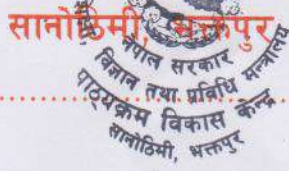 सानोठिमी, भक्तपुर
नेपाल सरकार
विज्ञान तथा प्रविधि मन्त्रालय
पाठ्यक्रम विकास केन्द्र
सानोठिमी, भक्तपुर